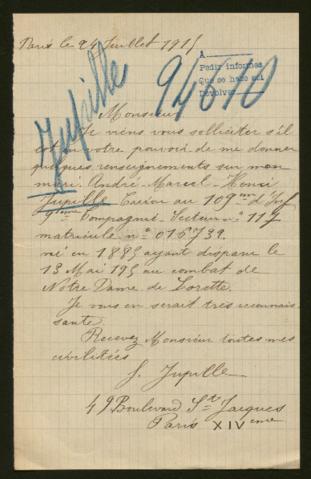 Paris le 24 Juillet 1915
A
Pedir informes
Que se hace así
Devolver
94610
Jupille
Monsieur
Je viens vous solliciter s'il
est en votre pouvoir de me donner
quelques renseignements sur mon
mari André-Marcel-Henri
Jupille au 109me d'Inf
9me Compagnie Secteur no 117
matricule no 016739.
né en 1885 ayant disparu le
13 Mai 195 au combat de
Notre Dame de Lorette.
Je vous en serait très reconnais
sante.
Recevez Monsieur toutes mes
civilitées
J. Jupille
49 Boulevard St Jacques
Paris XIVeme